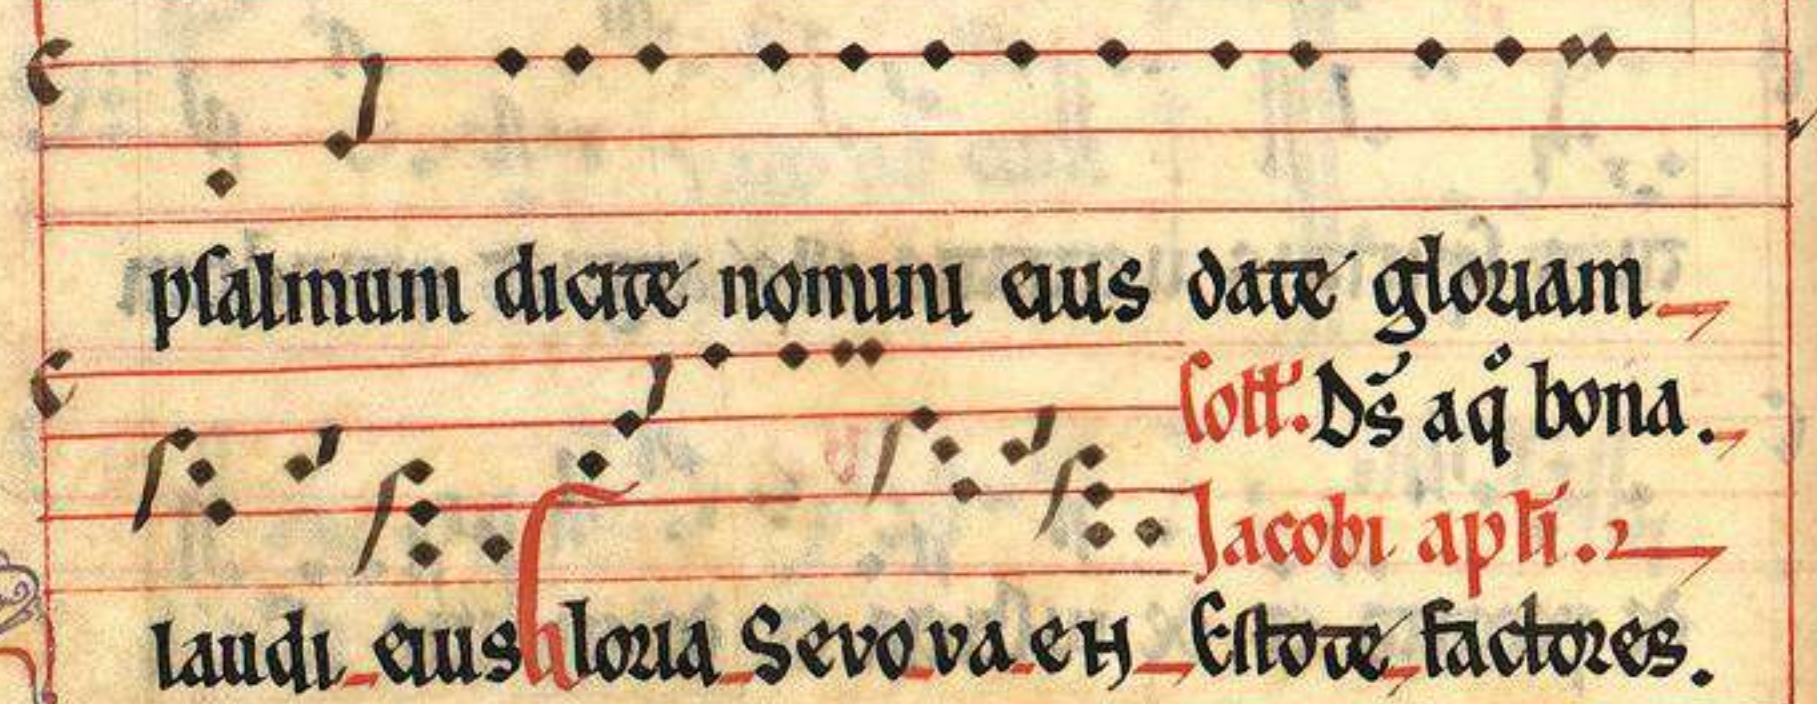 psalmum dicite nomini eius date gloriam
Coll'. Ds̄ a q̊ bona.
Jacobi apl̄i.
laudi eius Gloria Sevovaen Estote factores.